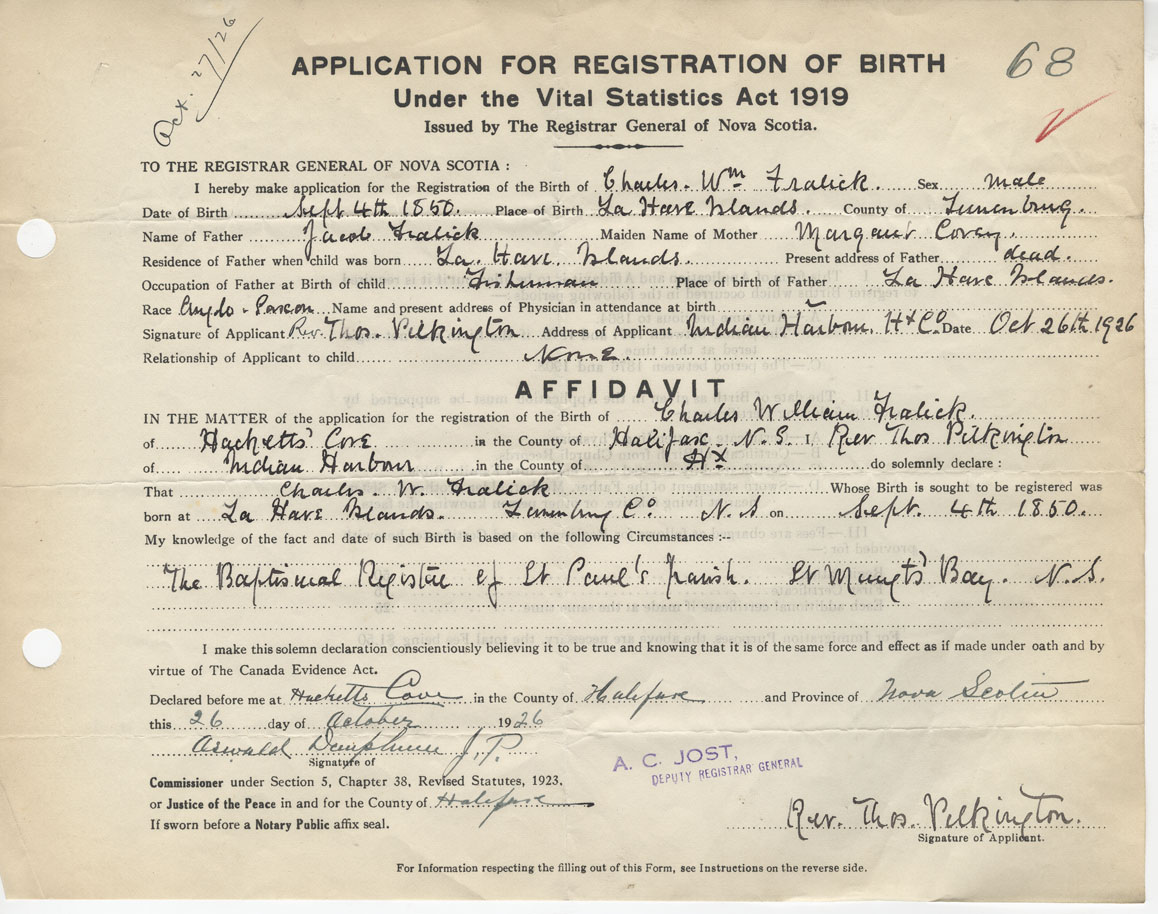 Oct. 27/26
68
APPLICATION FOR REGISTRATION OF BIRTH
Under the Vital Statistics Act 1919
Issued by The Registrar General of Nova Scotia.
TO THE REGISTRAR GENERAL OF NOVA SCOTIA :
I hereby make application for the Registration of the Birth of Charles. Wm Fralick. Sex male
Date of Birth Sept 4th 1850. Place of Birth La Have Islands. County of Lunenburg.
Name of Father Jacob Fralick Maiden Name of Mother Margaret Covey.
Residence of Father when child was born La. Have Islands. Present address of Father dead.
Occupation of Father at Birth of child Fisherman Place of birth of Father La Have Islands.
Race Anglo-Saxon Name and present address of Physician in attendance at birth –
Signature of Applicant Rev. Thos. Pilkington Address of Applicant Indian Harbour, Hx Co. Date Oct 26th 1926
Relationship of Applicant to child None.
AFFIDAVIT
IN THE MATTER of the application for the registration of the Birth of Charles William Fralick.
of Hacketts' Cove in the County of Halifax. N.S. I, Rev Thos Pilkington
of Indian Harbour in the County of Hx do solemnly declare :
That Charles. W. Fralick Whose Birth is sought to be registered was
born at La Have Islands. Lunenburg Co. N.S on Sept. 4th 1850.
My knowledge of the fact and date of such Birth is based on the following Circumstances :--
"The Baptismal Register of St Paul's Parish. St Margts' Bay. N.S.
I make this solemn declaration conscientiously believing it to be true and knowing that it is of the same force and effect as if made under oath and by
virtue of The Canada Evidence Act.
Declared before me at Hacketts Cove in the County of Halifax and Province of Nova Scotia
this 26 day of October 1926
Oswald J.P.
Signature of
Commissioner under Section 5, Chapter 38, Revised Statutes, 1923,
or Justice of the Peace in and for the County of Halifax
If sworn before a Notary Public affix seal.
A. C. JOST,
DEPUTY REGISTRAR GENERAL
Rev. Thos. Pilkington.
Signature of Applicant.
For Information respecting the filling out of this Form, see Instructions on the reverse side.